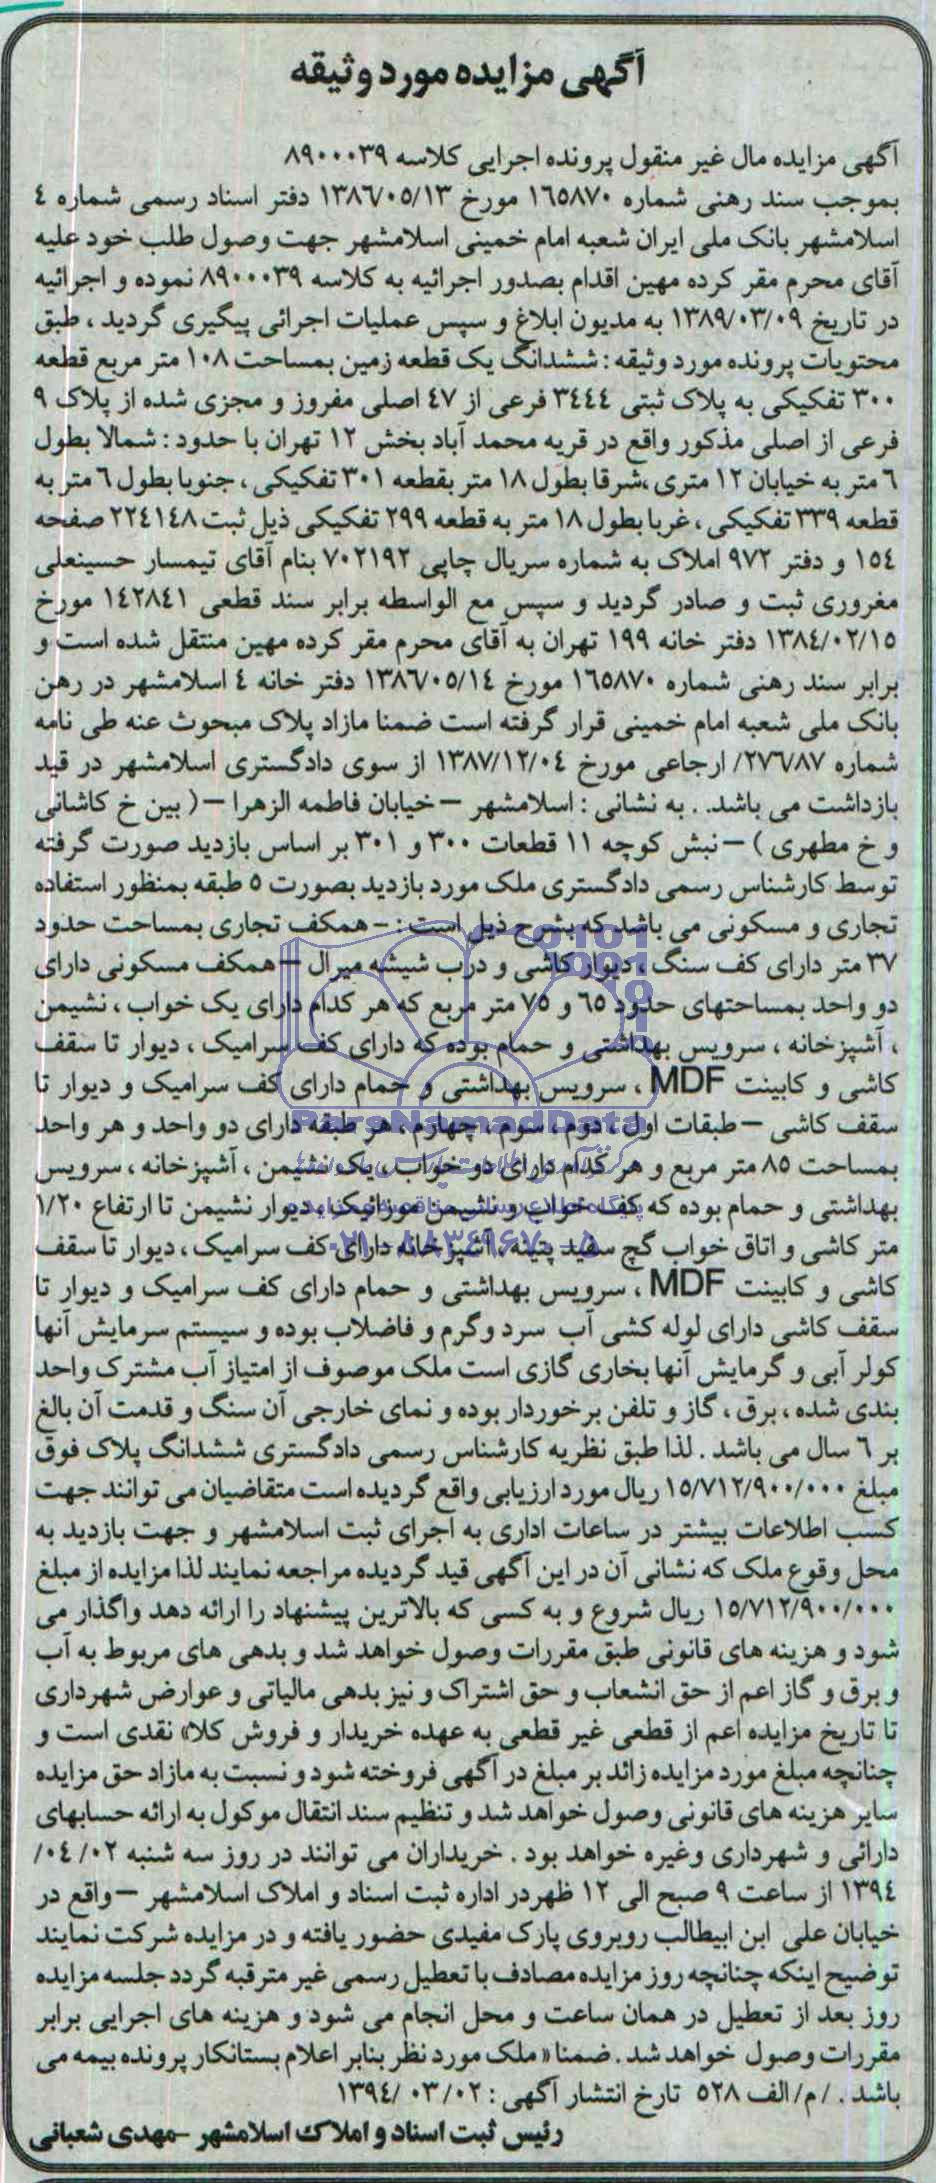 آگهی مزایده مورد وثیقه
آگهی مزایده مال غیر منقول پرونده اجرایی کلاسه ۸۹۰۰۰۳۹
بموجب سند رهنی شماره ۱۶۵۸۷۰ مورخ ۱۳۸۶/۰۵/۱۳ دفتر اسناد رسمی شماره ۴
اسلامشهر بانک ملی ایران شعبه امام خمینی اسلامشهر جهت وصول طلب خود علیه
آقای محرم مقر کرده مهین اقدام بصدور اجرائیه به کلاسه ۸۹۰۰۰۳۹ نموده و اجرائیه
در تاریخ ۱۳۸۹/۰۳/۰۹ به مدیون ابلاغ و سپس عملیات اجرائی پیگیری گردید ، طبق
محتویات پرونده مورد وثیقه : ششدانگ یک قطعه زمین بمساحت ۱۰۸ متر مربع قطعه
۳۰۰ تفکیکی به پلاک ثبتی ۳۴۴۴ فرعی از ۴۷ اصلی مفروز و مجزی شده از پلاک ۹
فرعی از اصلی مذکور واقع در قریه محمد آباد بخش ۱۲ تهران با حدود : شمالا بطول
۶ متر به خیابان ۱۲ متری ،شرقا بطول ۱۸ متر بقطعه ۳۰۱ تفکیکی ، جنوبا بطول ۶ متر به
قطعه ۳۳۹ تفکیکی ، غربا بطول ۱۸ متر به قطعه ۲۹۹ تفکیکی ذیل ثبت ۲۲۴۱۴۸ صفحه
۱۵۴ و دفتر ۹۷۲ املاک به شماره سریال چاپی ۷۰۲۱۹۲ بنام آقای تیمسار حسینعلی
مغروری ثبت و صادر گردید و سپس مع الواسطه برابر سند قطعی ۱۴۲۸۴۱ مورخ
۱۳۸۴/۰۲/۱۵ دفتر خانه ۱۹۹ تهران به آقای محرم مقر کرده مهین منتقل شده است و
برابر سند رهنی شماره ۱۶۵۸۷۰ مورخ ۱۳۸۶/۰۵/۱۴ دفتر خانه ۴ اسلامشهر در رهن
بانک ملی شعبه امام خمینی قرار گرفته است ضمنا مازاد پلاک مبحوث عنه طی نامه
شماره ۲۷۶/۸۷/ ارجاعی مورخ ۱۳۸۷/۱۲/۰۴ از سوی دادگستری اسلامشهر در قید
بازداشت می باشد. . به نشانی : اسلامشهر – خیابان فاطمه الزهرا – ( بین خ کاشانی
و خ مطهری ) – نبش کوچه ۱۱ قطعات ۳۰۰ و ۳۰۱ بر اساس بازدید صورت گرفته
توسط کارشناس رسمی دادگستری ملک مورد بازدید بصورت ۵ طبقه بمنظور استفاده
تجاری و مسکونی می باشد که بشرح ذیل است : - همکف تجاری بمساحت حدود
۳۷ متر دارای کف سنگ ، دیوار کاشی و درب شیشه میرال – همکف مسکونی دارای
دو واحد بمساحتهای حدود ۶۵ و ۷۵ متر مربع که هر کدام دارای یک خواب ، نشیمن
، آشپزخانه ، سرویس بهداشتی و حمام بوده که دارای کف سرامیک ، دیوار تا سقف
کاشی و کابینت MDF ، سرویس بهداشتی و حمام دارای کف سرامیک و دیوار تا
سقف کاشی – طبقات اول ، دوم ، سوم ، چهارم ، هر طبقه دارای دو واحد و هر واحد
بمساحت ۸۵ متر مربع و هر کدام دارای دو خواب ، یک نشیمن ، آشپزخانه ، سرویس
بهداشتی و حمام بوده که کف خواب و نشیمن موزائیک ، دیوار نشیمن تا ارتفاع ۱/۲۰
متر کاشی و اتاق خواب گچ سفید پتینه ، آشپزخانه دارای کف سرامیک ، دیوار تا سقف
کاشی و کابینت MDF ، سرویس بهداشتی و حمام دارای کف سرامیک و دیوار تا
سقف کاشی دارای لوله کشی آب سرد وگرم و فاضلاب بوده و سیستم سرمایش آنها
کولر آبی و گرمایش آنها بخاری گازی است ملک موصوف از امتیاز آب مشترک واحد
بندی شده ، برق ، گاز و تلفن برخوردار بوده و نمای خارجی آن سنگ و قدمت آن بالغ
بر ۶ سال می باشد . لذا طبق نظریه کارشناس رسمی دادگستری ششدانگ پلاک فوق
مبلغ ۱۵/۷۱۲/۹۰۰/۰۰۰ ریال مورد ارزیابی واقع گردیده است متقاضیان می توانند جهت
کسب اطلاعات بیشتر در ساعات اداری به اجرای ثبت اسلامشهر و جهت بازدید به
محل وقوع ملک که نشانی آن در این آگهی قید گردیده مراجعه نمایند لذا مزایده از مبلغ
۱۵/۷۱۲/۹۰۰/۰۰۰ ریال شروع و به کسی که بالاترین پیشنهاد را ارائه دهد واگذار می
شود و هزینه های قانونی طبق مقررات وصول خواهد شد و بدهی های مربوط به آب
و برق و گاز اعم از حق انشعاب و حق اشتراک و نیز بدهی مالیاتی و عوارض شهرداری
تا تاریخ مزایده اعم از قطعی غیر قطعی به عهده خریدار و فروش کلا» نقدی است و
چنانچه مبلغ مورد مزایده زائد بر مبلغ در آگهی فروخته شود و نسبت به مازاد حق مزایده
سایر هزینه های قانونی وصول خواهد شد و تنظیم سند انتقال موکول به ارائه حسابهای
دارائی و شهرداری وغیره خواهد بود . خریداران می توانند در روز سه شنبه ۰۲/ ۰۴/
۱۳۹۴ از ساعت ۹ صبح الی ۱۲ ظهردر اداره ثبت اسناد و املاک اسلامشهر – واقع در
خیابان علی ابن ابیطالب روبروی پارک مفیدی حضور یافته و در مزایده شرکت نمایند
توضیح اینکه چنانچه روز مزایده مصادف با تعطیل رسمی غیر مترقبه گردد جلسه مزایده
روز بعد از تعطیل در همان ساعت و محل انجام می شود و هزینه های اجرایی برابر
مقررات وصول خواهد شد . ضمنا « ملک مورد نظر بنابر اعلام بستانکار پرونده بیمه می
باشد . / م/ الف ۵۲۸ تارخ انتشار آگهی : ۰۲/ ۰۳/ ۱۳۹۴
رئیس ثبت اسناد و املاک اسلامشهر -مهدی شعبانی
ParsNamadData
۰۲۱-۸۸۳۴۹۶۷۰-۵